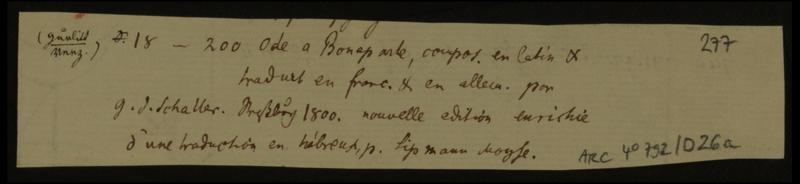 D. 18 — 200 Ode a Bonaparte, compos. en latin & 277
traduit en franc. & en allem. par
g. J. Schaller. 1800. nouvelle edition enrichie
d'une traduction en hébreux, p. Lipmann Moyse.
ARC 4° 792/D26a